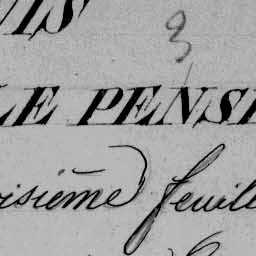 UIS 3
LE PENSI
oisième feuille